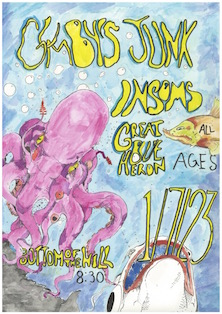 JUNK
INSOMS
GREAT
BLUE
HERON
ALL
AGES
1/7/23
BOTTOM OF THE HILL
8:30